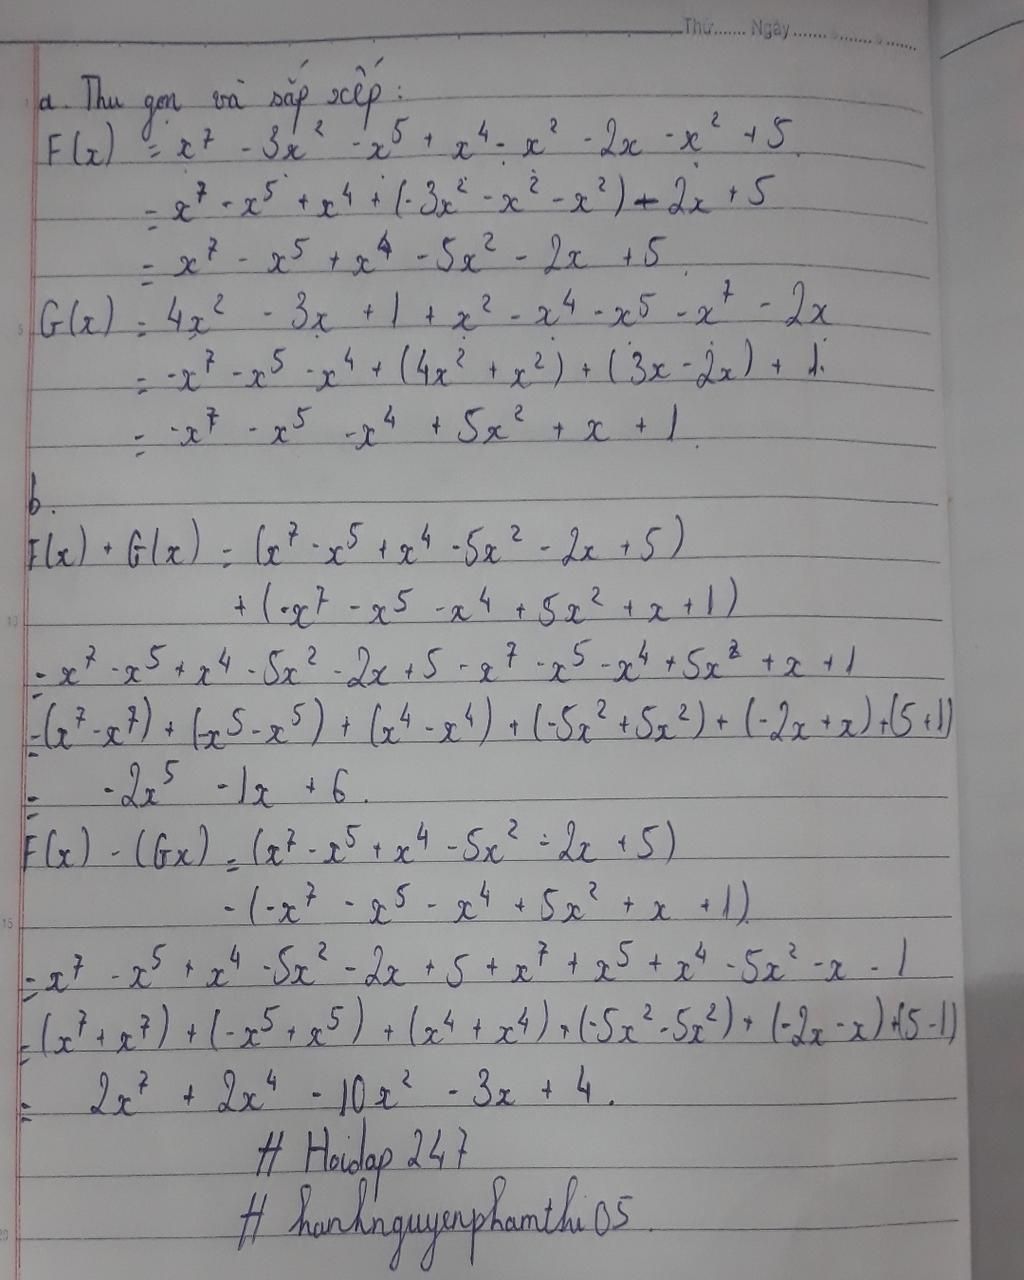 Thứ....... Ngày....................
a. Thu gọn và sắp xếp:
F(x) = x⁷ - 3x² - x⁵ + x⁴ - x² - 2x - x² + 5
= x⁷ - x⁵ + x⁴ + (-3x² - x² - x²) - 2x + 5
= x⁷ - x⁵ + x⁴ - 5x² - 2x + 5
G(x) = 4x² - 3x + 1 + x² - x⁴ - x⁵ - x⁷ - 2x
= -x⁷ - x⁵ - x⁴ + (4x² + x²) + (3x - 2x) + 1.
= -x⁷ - x⁵ - x⁴ + 5x² + x + 1.
b.
F(x) + G(x) = (x⁷ - x⁵ + x⁴ - 5x² - 2x + 5)
+ (-x⁷ - x⁵ - x⁴ + 5x² + x + 1)
= x⁷ - x⁵ + x⁴ - 5x² - 2x + 5 - x⁷ - x⁵ - x⁴ + 5x² + x + 1
= (x⁷ - x⁷) + (-x⁵ - x⁵) + (x⁴ - x⁴) + (-5x² + 5x²) + (-2x + x) + (5 + 1)
= -2x⁵ - 1x + 6.
F(x) - (Gx) = (x⁷ - x⁵ + x⁴ - 5x² - 2x + 5)
- (-x⁷ - x⁵ - x⁴ + 5x² + x + 1)
= x⁷ - x⁵ + x⁴ - 5x² - 2x + 5 + x⁷ + x⁵ + x⁴ - 5x² - x - 1
= (x⁷ + x⁷) + (-x⁵ + x⁵) + (x⁴ + x⁴) + (-5x² - 5x²) + (-2x - x) + (5 - 1)
= 2x⁷ + 2x⁴ - 10x² - 3x + 4.
# Hoidap 247
# hanhnguyenphamthi05.